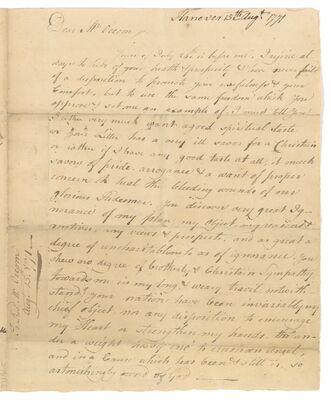 Hanover 15th Augt. 1771
Dear Mr. Occom
Yours of July 24th is before me, I rejoice al
ways to hear of your health & prosperity & have never failed
of a disposition to promote your usefulness & your
Comfort, but to use the same freedom which you
approve & set me an example of, I must tell you
I either very much want a good spiritual taste
or your Letter has a very ill savor for a Christian
or rather if I have any good taste at all, it much
savors of pride, arrogance & a want of proper
concern to heal the bleeding wounds of our
glorious Redeemer. You discover very great Ig-
norance of my plan, my object, my reasons &
motives, my views & prospects, and as great a
degree of uncharitableness as of ignorance. You
shew no degree of brotherly & Christian Sympathy
towards me in my long & weary travel notwith
standg. your nation have been invariably my
chief object, nor any disposition to encourage
my Heart or strengthen my hands, tho' un-
der a weight heavy eno' to crush an angel,
and in a Cause which has been & still is so
astonishingly owned of God
To Revd. Mr. Occom.
Aug. 15. 1771.